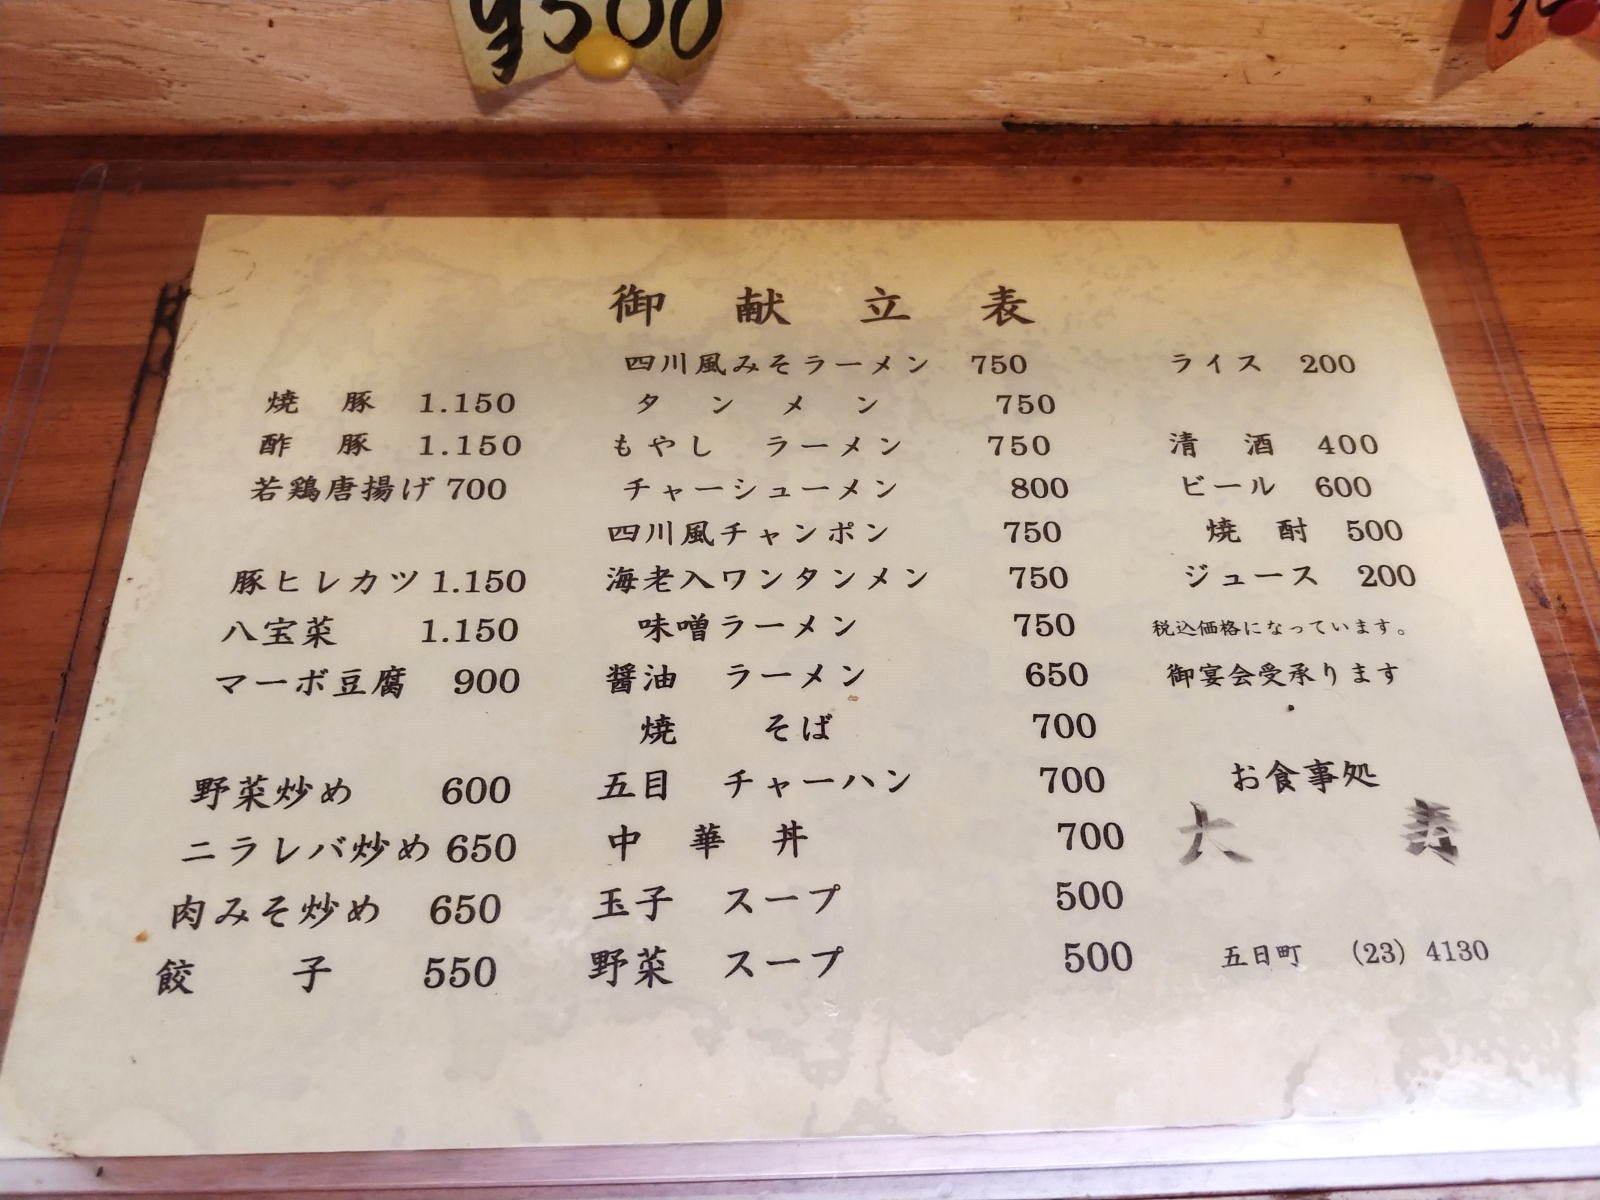 ¥500
御献立表
焼豚 1.150
酢豚 1.150
若鶏唐揚げ 700
豚ヒレカツ 1.150
八宝菜 1.150
マーボ豆腐 900
野菜炒め 600
ニラレバ炒め 650
肉みそ炒め 650
餃子 550
四川風みそラーメン 750
タンメン 750
もやし ラーメン 750
チャーシューメン 800
四川風チャンポン 750
海老入ワンタンメン 750
味噌ラーメン 750
醤油 ラーメン 650
焼そば 700
五目 チャーハン 700
中華丼 700
玉子 スープ 500
野菜 スープ 500
ライス 200
清酒 400
ビール 600
焼酎 500
ジュース 200
税込価格になっています。
御宴会受承ります
お食事処
大寿
五日町 (23) 4130